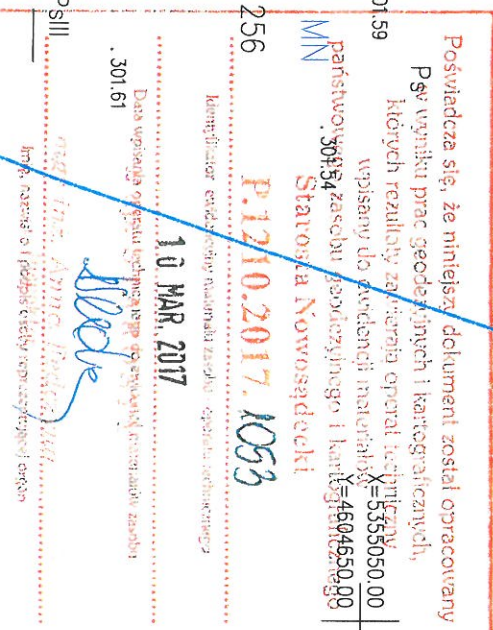 Poświadcza się, że niniejszy dokument został opracowany
w wyniku prac geodezyjnych i kartograficznych,
których rezultaty zawiera operat techniczny
wpisany do ewidencji materiałów
państwowego zasobu geodezyjnego i kartograficznego
Starosta Nowosądecki
P.1210.2017.1053
Identyfikator ewidencyjny materiału zasobu
10 MAR. 2017
Data wpisania operatu technicznego do ewidencji materiałów zasobu
mgr inż. Anna
Imię, nazwisko i podpis osoby reprezentującej organ
01.59
Ps
MN
256
. 301.54
X=5355050.00
Y=4604650.00
. 301.61
PsIII